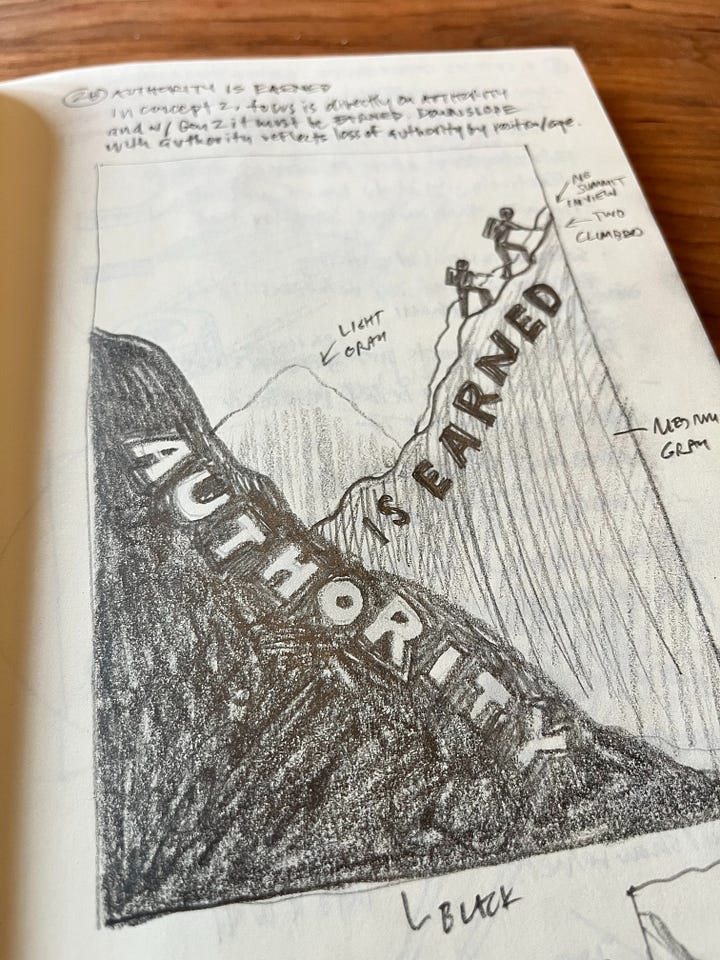 2b AUTHORITY IS EARNED
In concept 2, focus is directly on AUTHORITY
and w/ Gen Z it must be EARNED. DOWNSLOPE
with authority reflects loss of authority by position/age.
NO
SUMMIT
IN VIEW
TWO
CLIMBERS
LIGHT
GRAY
IS EARNED
MEDIUM
GRAY
AUTHORITY
BLACK